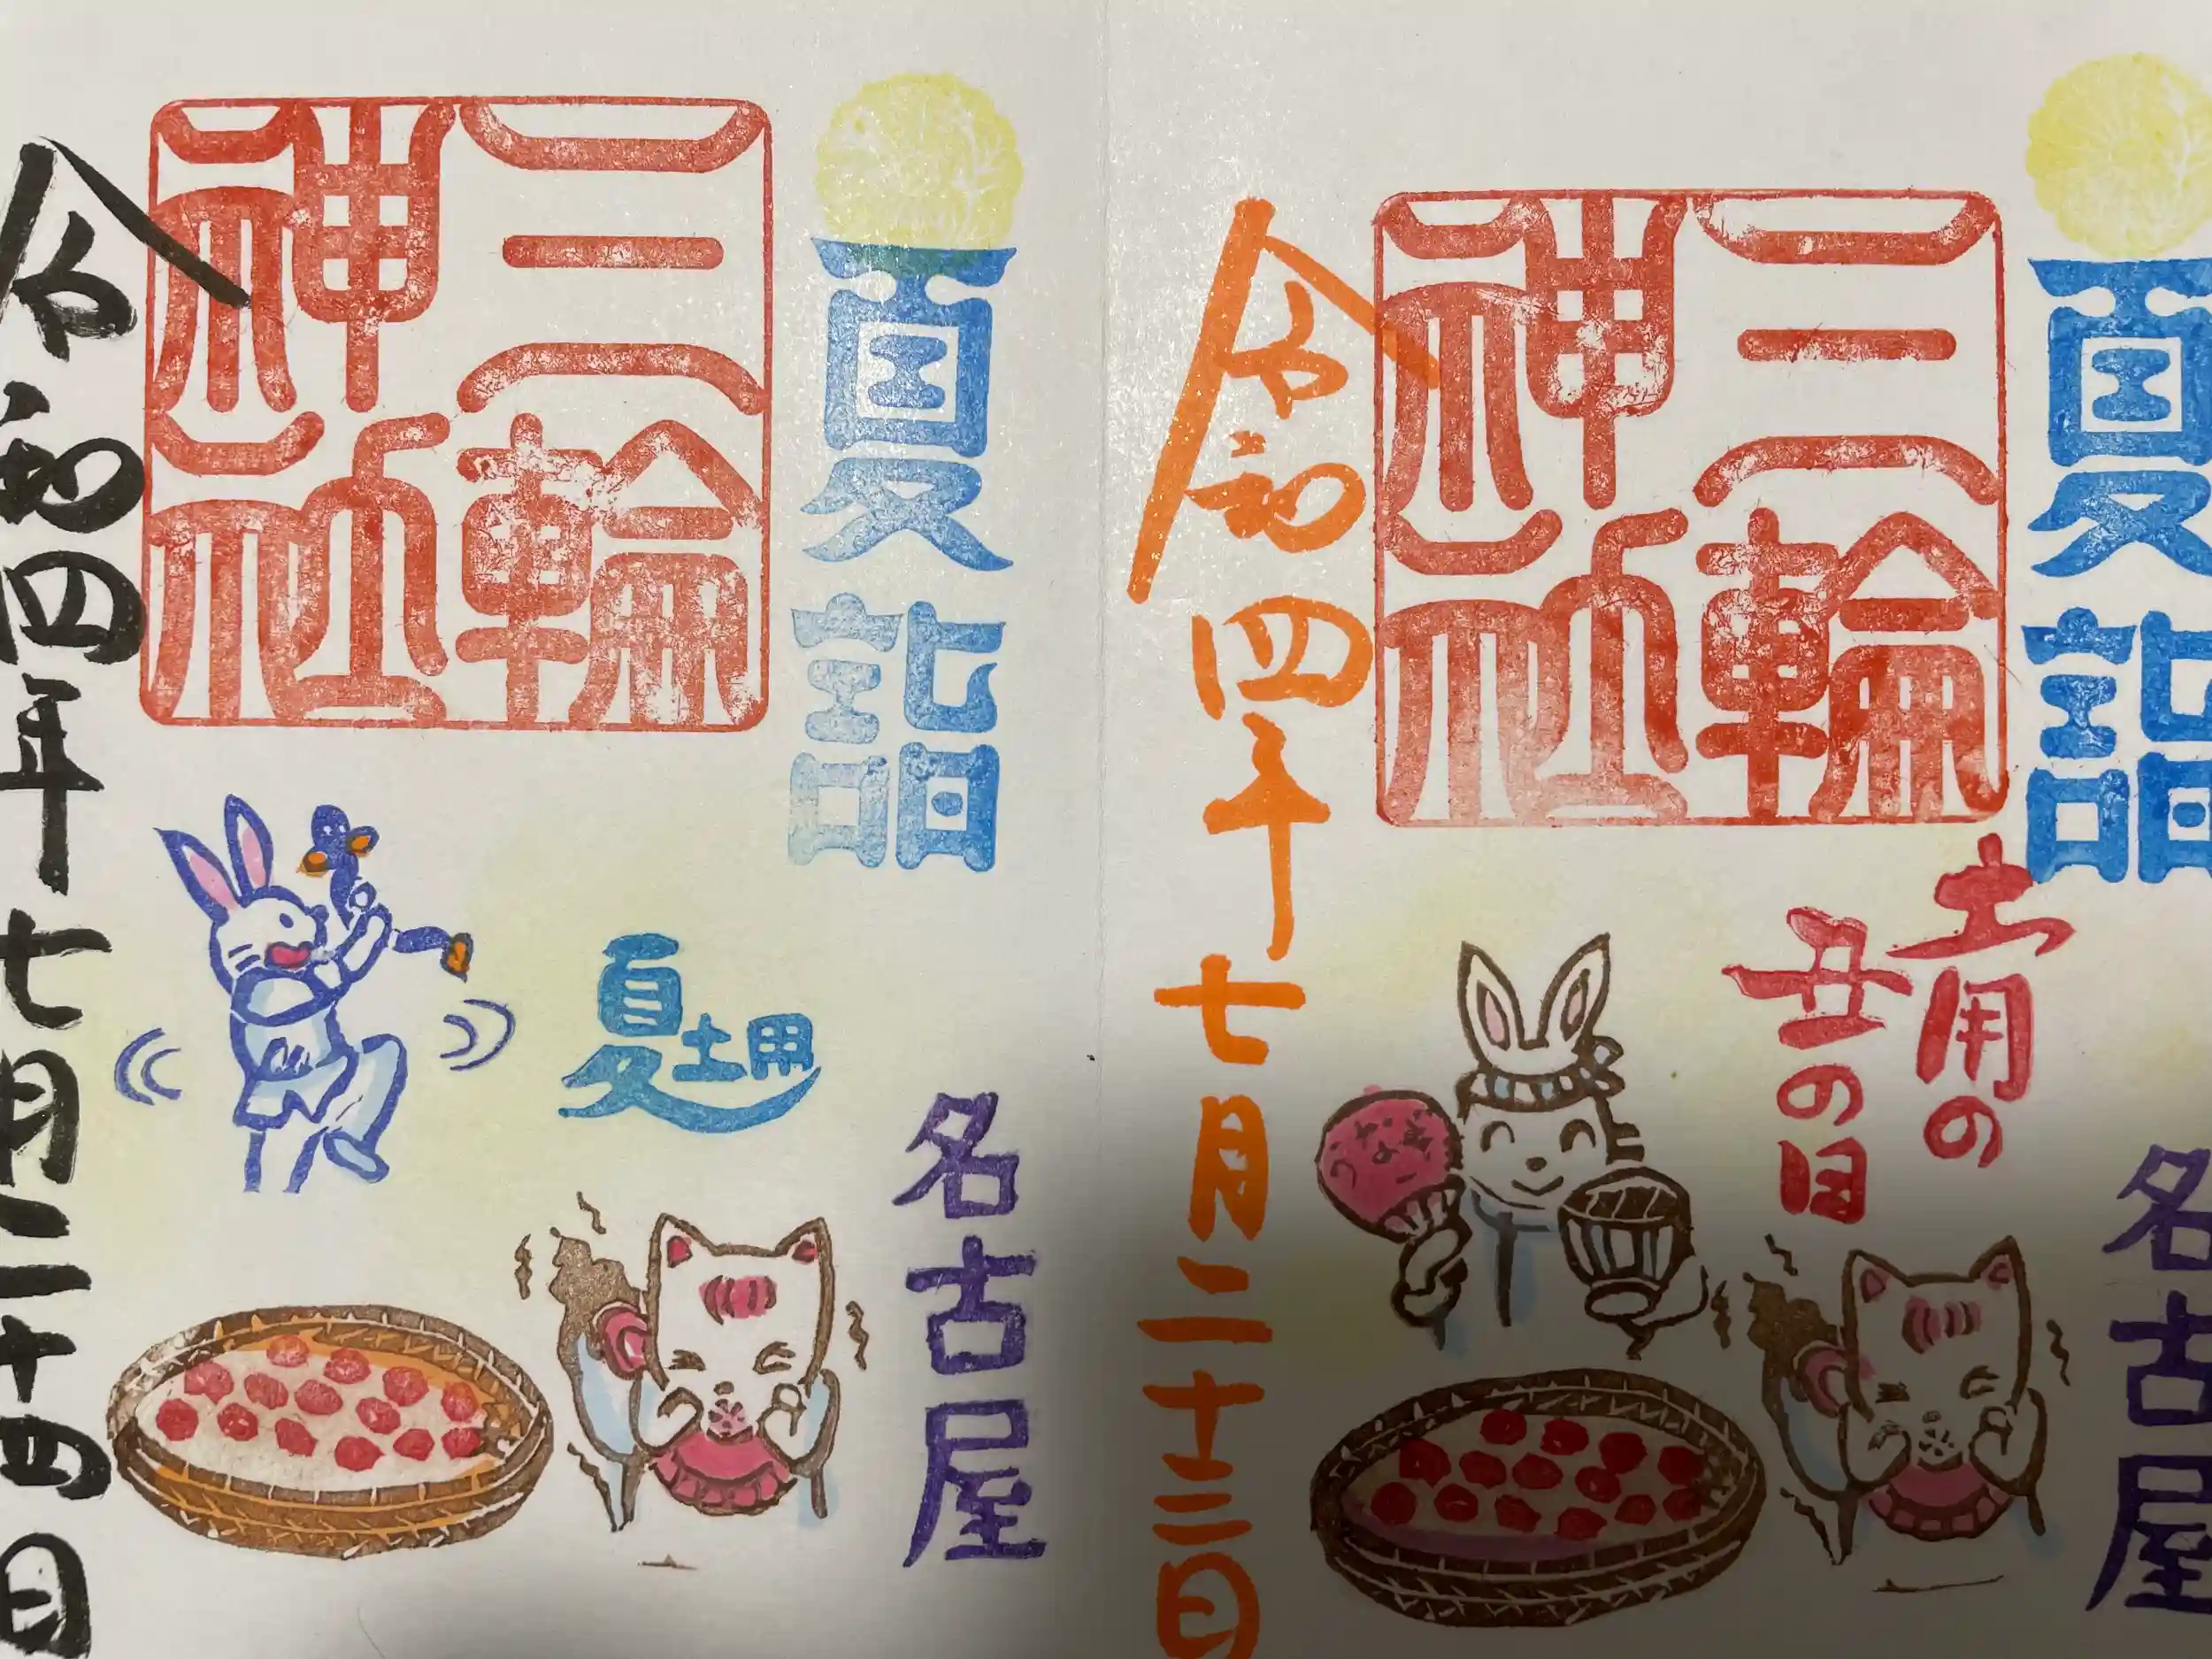 夏詣
三輪
神社
土用の
丑の日
うめ
令和四年七月二十三日
名古屋
夏詣
三輪
神社
夏土用
令和四年七月二十四日
名古屋